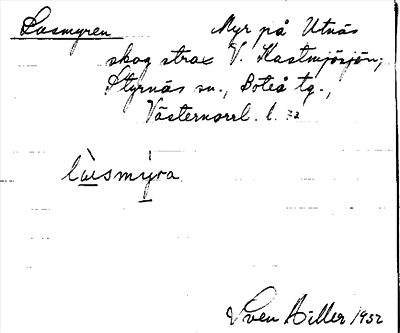 Lasmyren Myr på Utnäs
skog strax V. Kastmjösjön,
Styrnäs sn., Boteå tg.,
Västernorrl. l. 32
làismỳra
Sven Hiller 1932